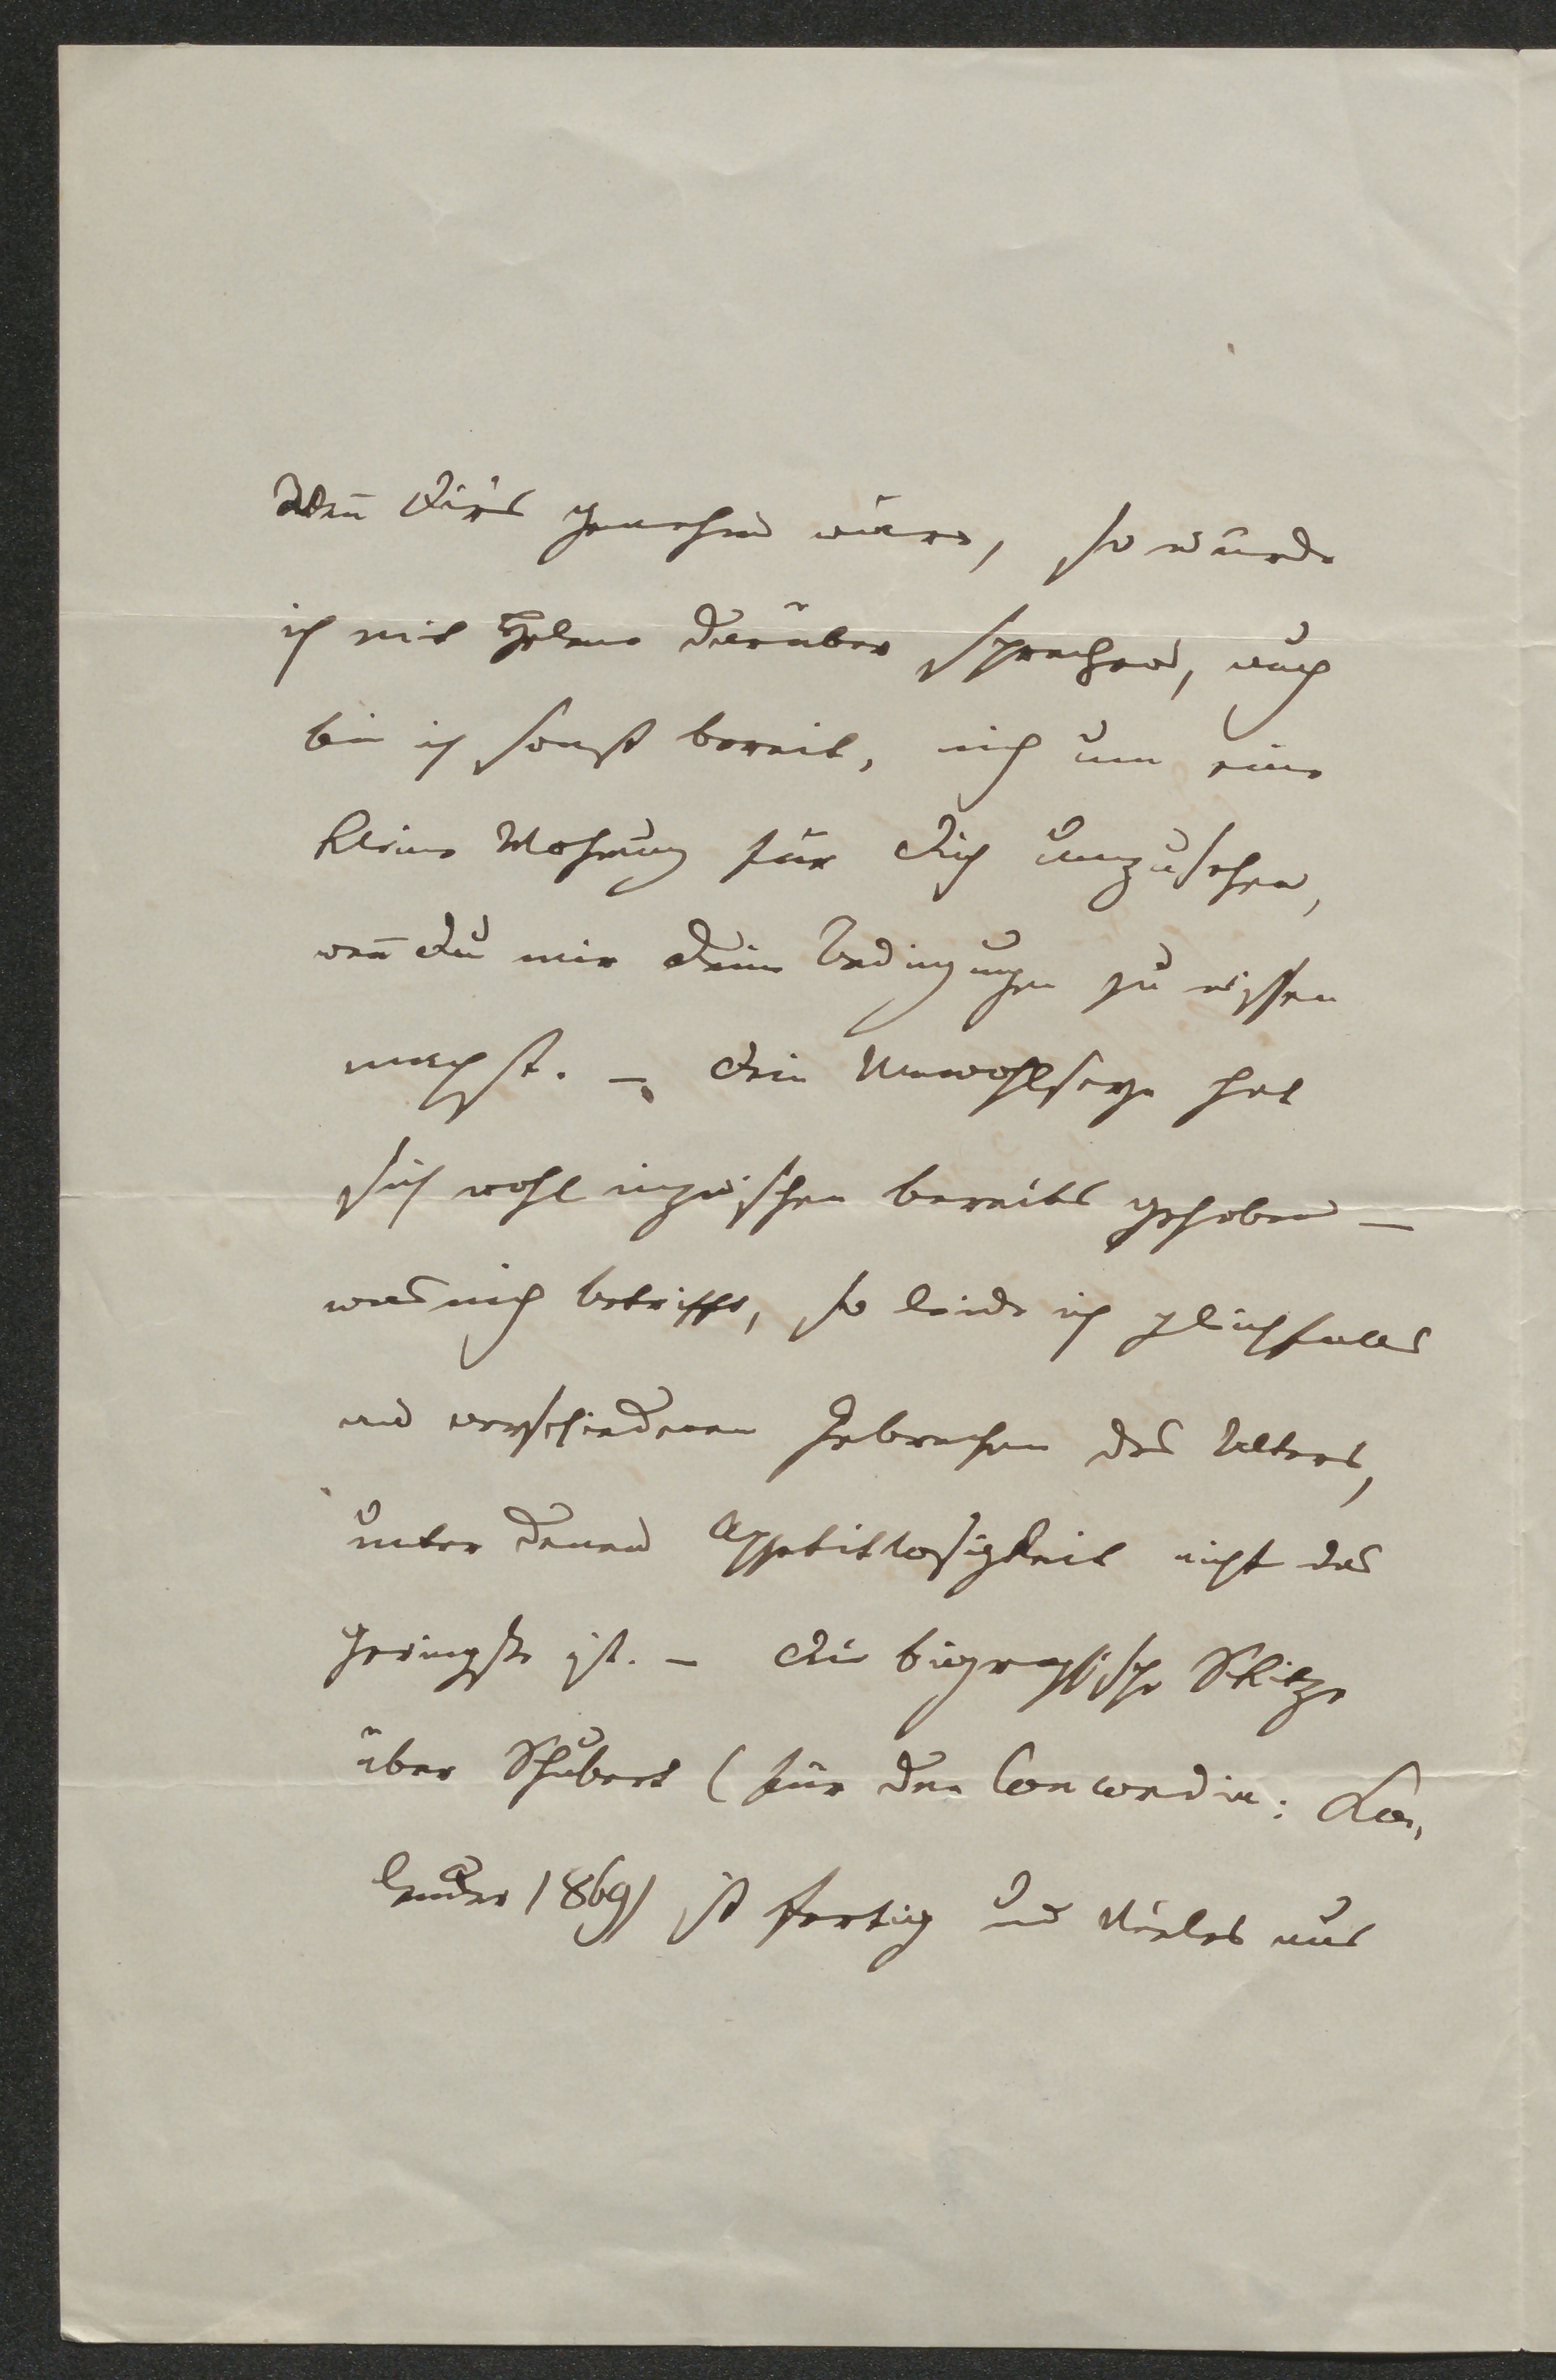 Weñ Dir's genehm wäre, so würde
ich mit Helene darüber sprechen, auch
bin ich sonst bereit, mich um eine
kleine Wohnung für Dich umzusehen,
weñ Du mir Deine Bedingungen zu wissen
machst. – Dein Unwohlseyn hat
sich wohl inzwischen bereits gehoben –
was mich betrifft, so leide ich gleichfalls
an verschiedenen Gebrechen des Alters,
unter denen Appetitlosigkeit nicht das
Geringste ist. – Die biographische Skitze
über Schubert (für den Concordia: Ka,
lender 1869) ist fertig und Vieles aus